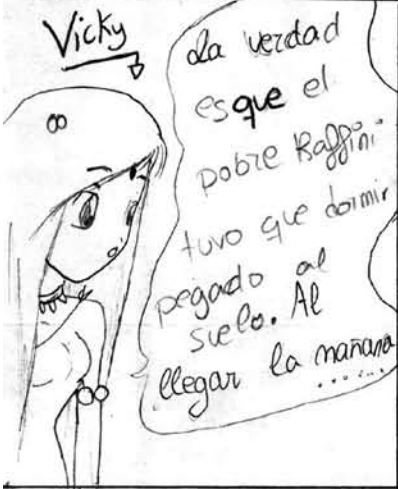 Vicky
La verdad
esque el
pobre Raffini
tuvo que dormir
pegado al
suelo. Al
llegar la mañana
.......